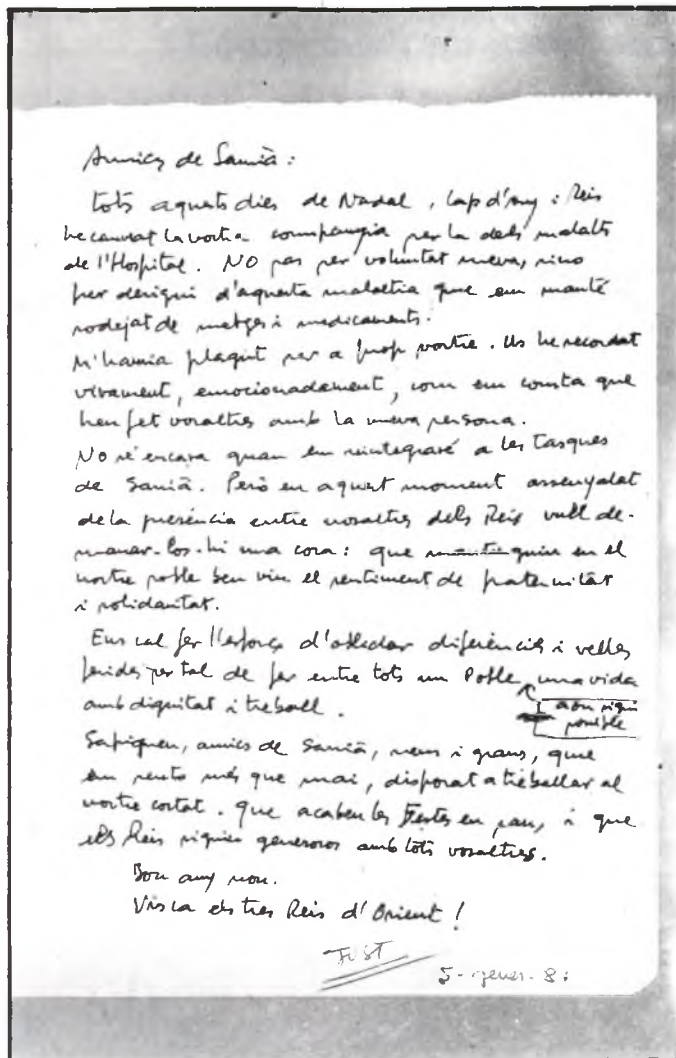 Amics de Sanià:
tots aquests dies de Nadal, Cap d'any i Reis
he canviat la vostra companyia per la dels malalts
de l'Hospital. NO pas per voluntat meva, sino
per designi d'aquesta malaltia que em manté
rodejat de metges i medicaments.
M'hauria plagut ser a prop vostre. Us he recordat
vivament, emocionadament, com em consta que
heu fet vosaltres amb la meva persona.
No sé encara quan em reintegraré a les tasques
de Sanià. Però en aquest moment assenyalat
de la presència entre nosaltres dels Reis vull de-
manar-los-hi una cosa: que mantinguin en el
nostre poble ben viu el sentiment de fraternitat
i solidaritat.
Ens cal fer l'esforç d'oblidar diferències i velles
ferides per tal de fer entre tots un Poble una vida
amb dignitat i treball.
a on sigui
possible
Sapigueu, amics de Sanià, nens i grans, que
em sento més que mai, disposat a treballar al
vostre costat. Que acabeu les Festes en pau, i que
els Reis siguin generosos amb tots vosaltres.
Bon any nou.
Visca els tres Reis d'Orient!
JUST
5-gener-8